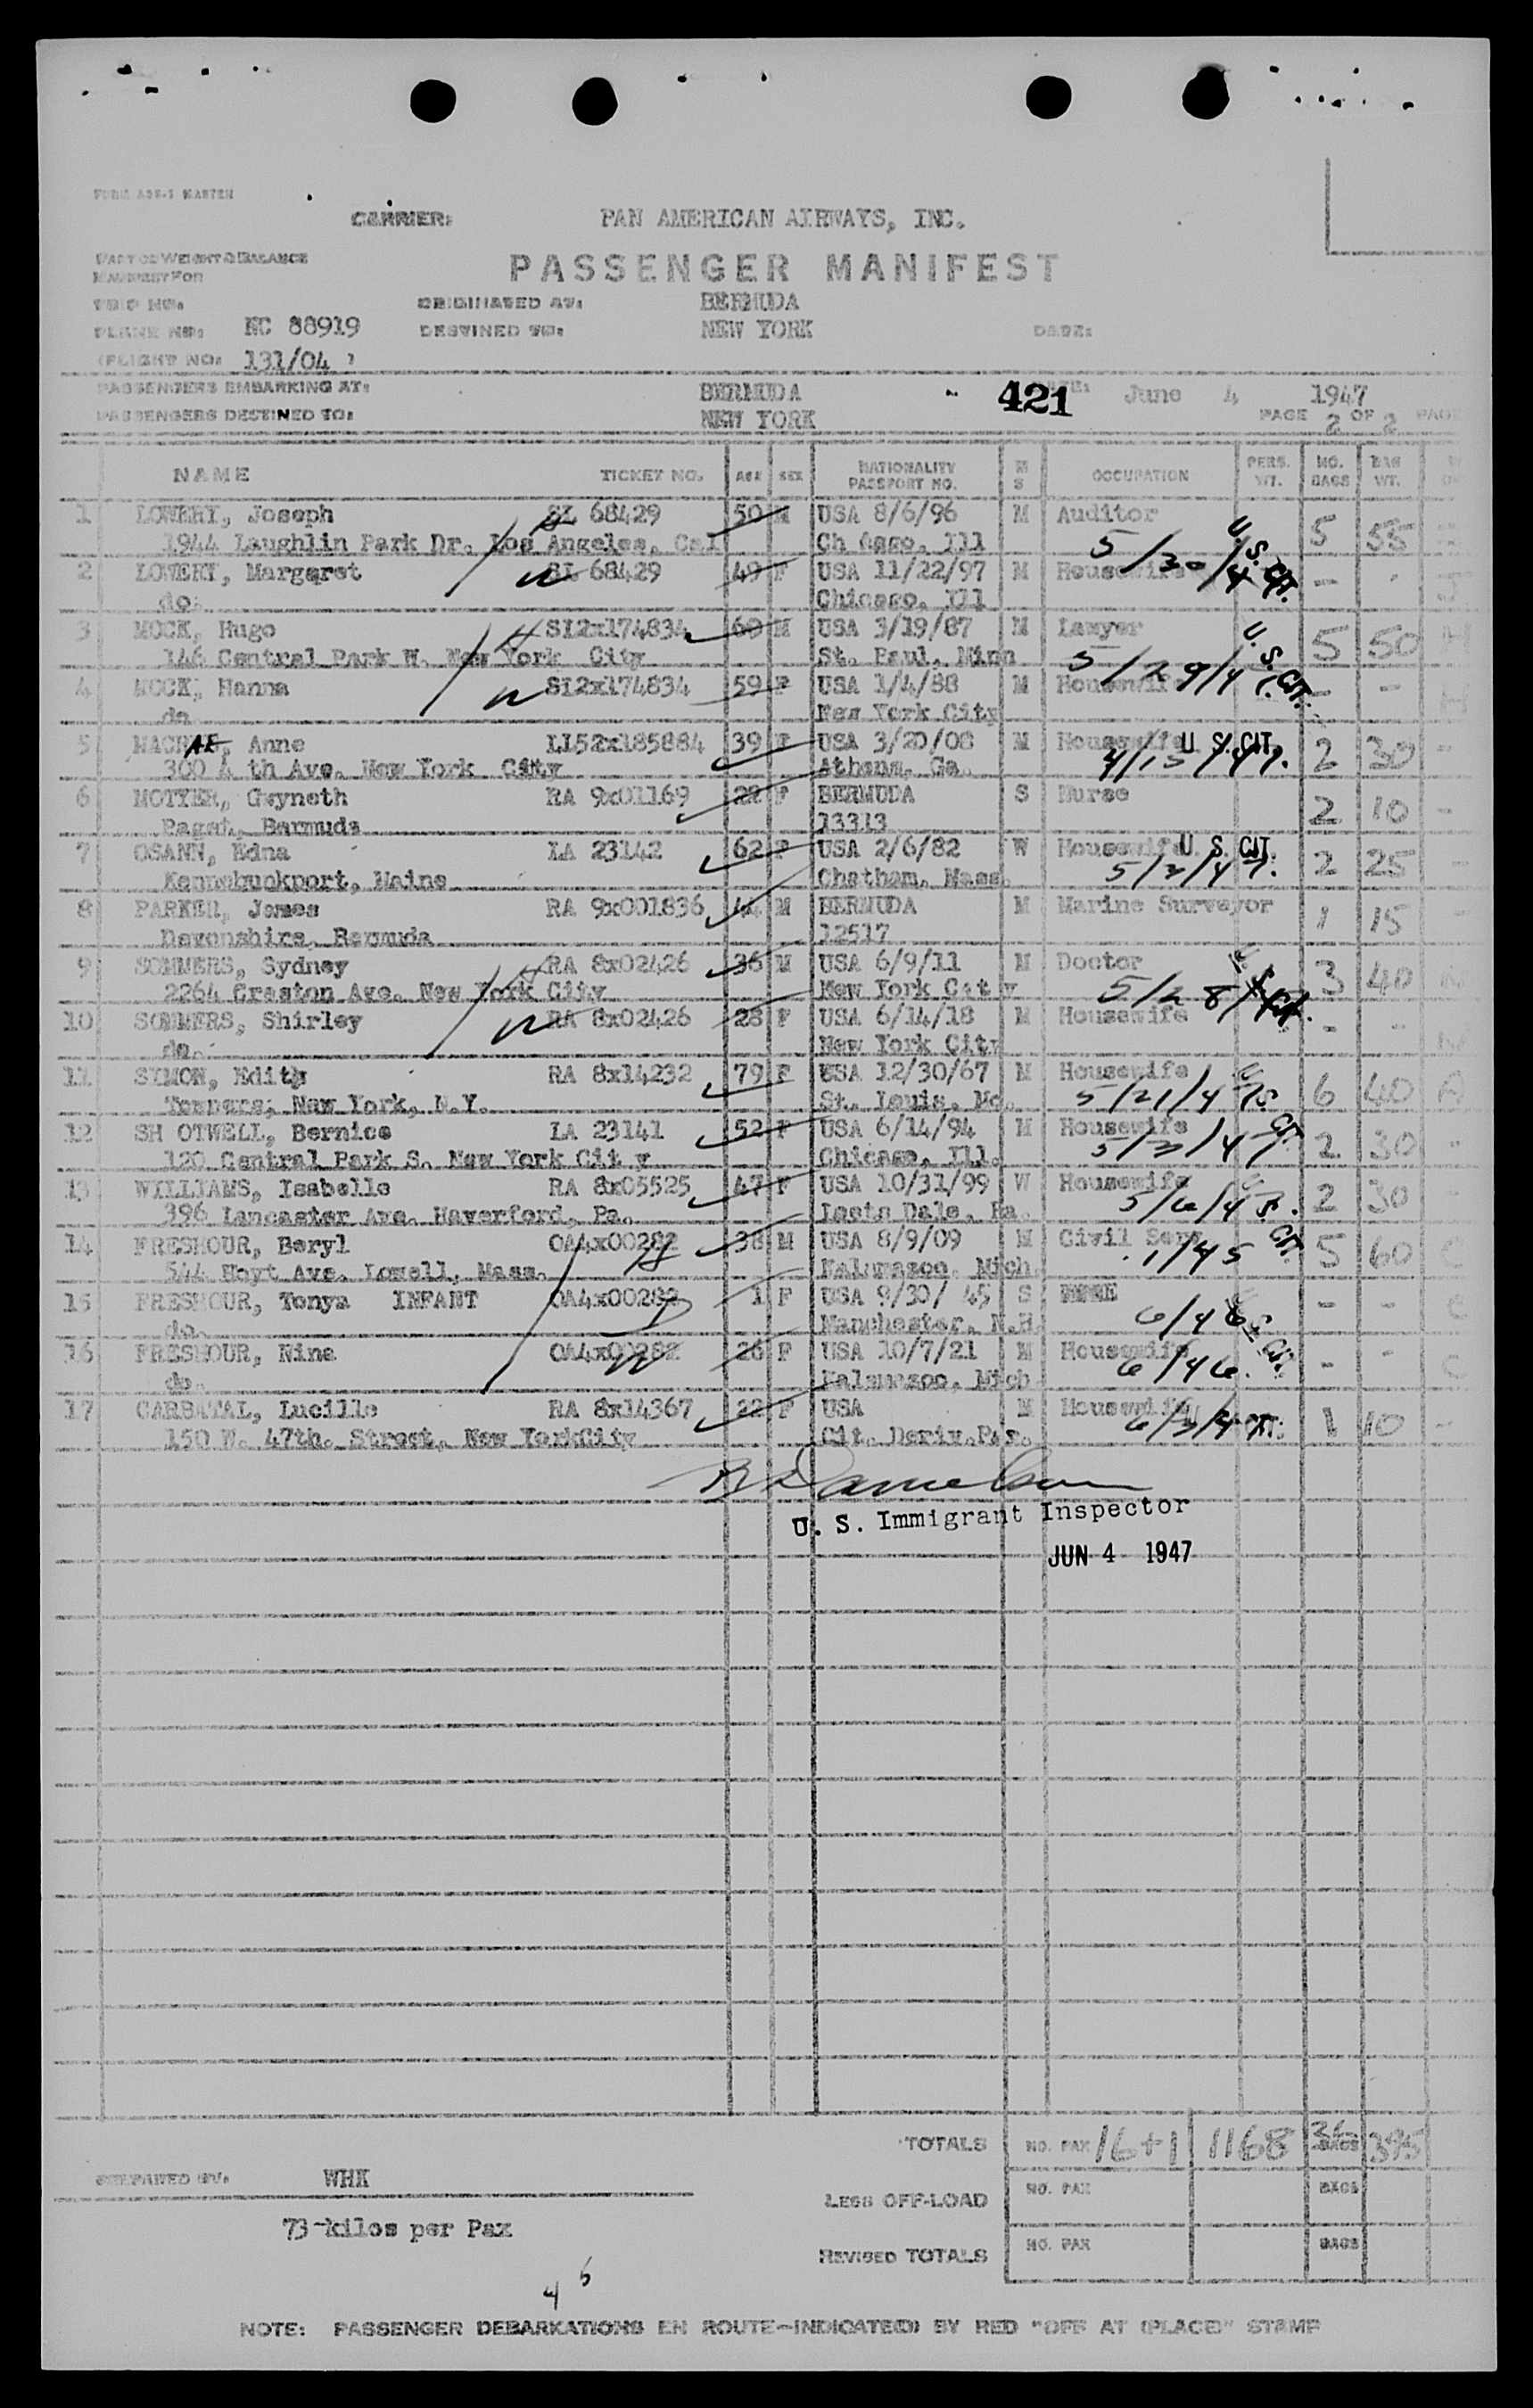 FORM ADS-1 MASTER
CARRIER: PAN AMERICAN AIRWAYS, INC.
PART OF WEIGHT & BALANCE
MANIFEST FOR
PASSENGER MANIFEST
TRIP NO: ORIGINATED AT: BERMUDA
PLANE NO: NC 88919 DESTINED TO: NEW YORK DATE:
(FLIGHT NO: 131/04 )
PASSENGERS EMBARKING AT: BERMUDA 421 DATE: June 4 1947
PASSENGERS DESTINED TO: NEW YORK PAGE 2 OF 2 PAGE
NAME TICKET NO. AGE SEX NATIONALITY PASSPORT NO. M S OCCUPATION PERS. WT. NO. BAGS BAG WT.
1 LOWERY, Joseph SL 68429 50 M USA 8/6/96 M Auditor 5 55
1944 Laughlin Park Dr. Los Angeles, Cal Ch cago, Ill 5/30/4 U. S. CIT.
2 LOWERY, Margaret SL 68429 49 F USA 11/22/97 M Housewife - -
do. Chicago, Ill
3 MOCK, Hugo SI2x174834 60 M USA 3/19/87 M Lawyer 5 50 H
146 Central Park W. New York City St. Paul, Minn 5/29/4 U. S. CIT.
4 MOCK, Hanna SI2x174834 59 F USA 1/4/88 M Housewife - - H
do New York City
5 MACRAE, Anne LI52x185884 39 F USA 3/20/08 M Housewife U. S. CIT. 2 30 -
300 4 th Ave. New York City Athens, Ga. 4/15/47.
6 MOTYER, Gwyneth RA 9x01169 22 F BERMUDA S Nurse 2 10 -
Paget, Bermuda 13313
7 OSANN, Edna LA 23142 62 F USA 2/6/82 W Housewife U. S. CIT. 2 25 -
Kennebuckport, Maine Chatham, Mass. 5/2/47.
8 PARKER, James RA 9x001836 44 M BERMUDA M Marine Surveyor 1 15 -
Devonshire, Bermuda 12517
9 SOMMERS, Sydney RA 8x02426 36 M USA 6/9/11 M Doctor 3 40
2264 Creston Ave. New York City New York Cit y 5/28/ U. S. CIT.
10 SOMMERS, Shirley RA 8x02426 28 F USA 6/14/18 M Housewife - -
do. New York City
11 SYMON, Edith RA 8x14232 79 F USA 12/30/67 M Housewife 6 40 A
Towners, New York, N.Y. St. Louis, Mo. 5/21/47 U. S. CIT.
12 SH OTWELL, Bernice LA 23141 52 F USA 6/14/94 M Housewife 2 30 -
120 Central Park S. New York Cit y Chicago, Ill. 5/3/47.
13 WILLIAMS, Isabelle RA 8x05525 47 F USA 10/31/99 W Housewife 2 30 -
396 Lancaster Ave. Haverford, Pa. Leets Dale, Pa. 5/6/4 U. S. CIT.
14 FRESHOUR, Beryl OA4x00282 38 M USA 8/9/09 M Civil Serv 5 60 C
544 Hoyt Ave. Lowell, Mass. Kalamazoo, Mich. 1/45
15 FRESHOUR, Tonya INFANT OA4x00282 1 F USA 9/30/ 45 S - - C
do. Manchester, N.H. 6/46 U. S. CIT.
16 FRESHOUR, Nina OA4x00282 26 F USA 10/7/21 M Housewife - - C
do. Kalamazoo, Mich 6/46.
17 CARBATAL, Lucille RA 8x14367 22 F USA M Housewife 1 10 -
150 W. 47th. Street, New YorkCity Cit. Deriv.Par. 6/3/4 CIT.
U. S. Immigrant Inspector
JUN 4 1947
TOTALS NO. PAX 16+1 1168 36 BAGS 395
PREPARED BY: WHK
LESS OFF-LOAD NO. PAX BAGS
73-kilos per Pax
REVISED TOTALS NO. PAX BAGS
4 6
NOTE: PASSENGER DEBARKATIONS EN ROUTE—INDICATE(D) BY RED "OFF AT (PLACE)" STAMP